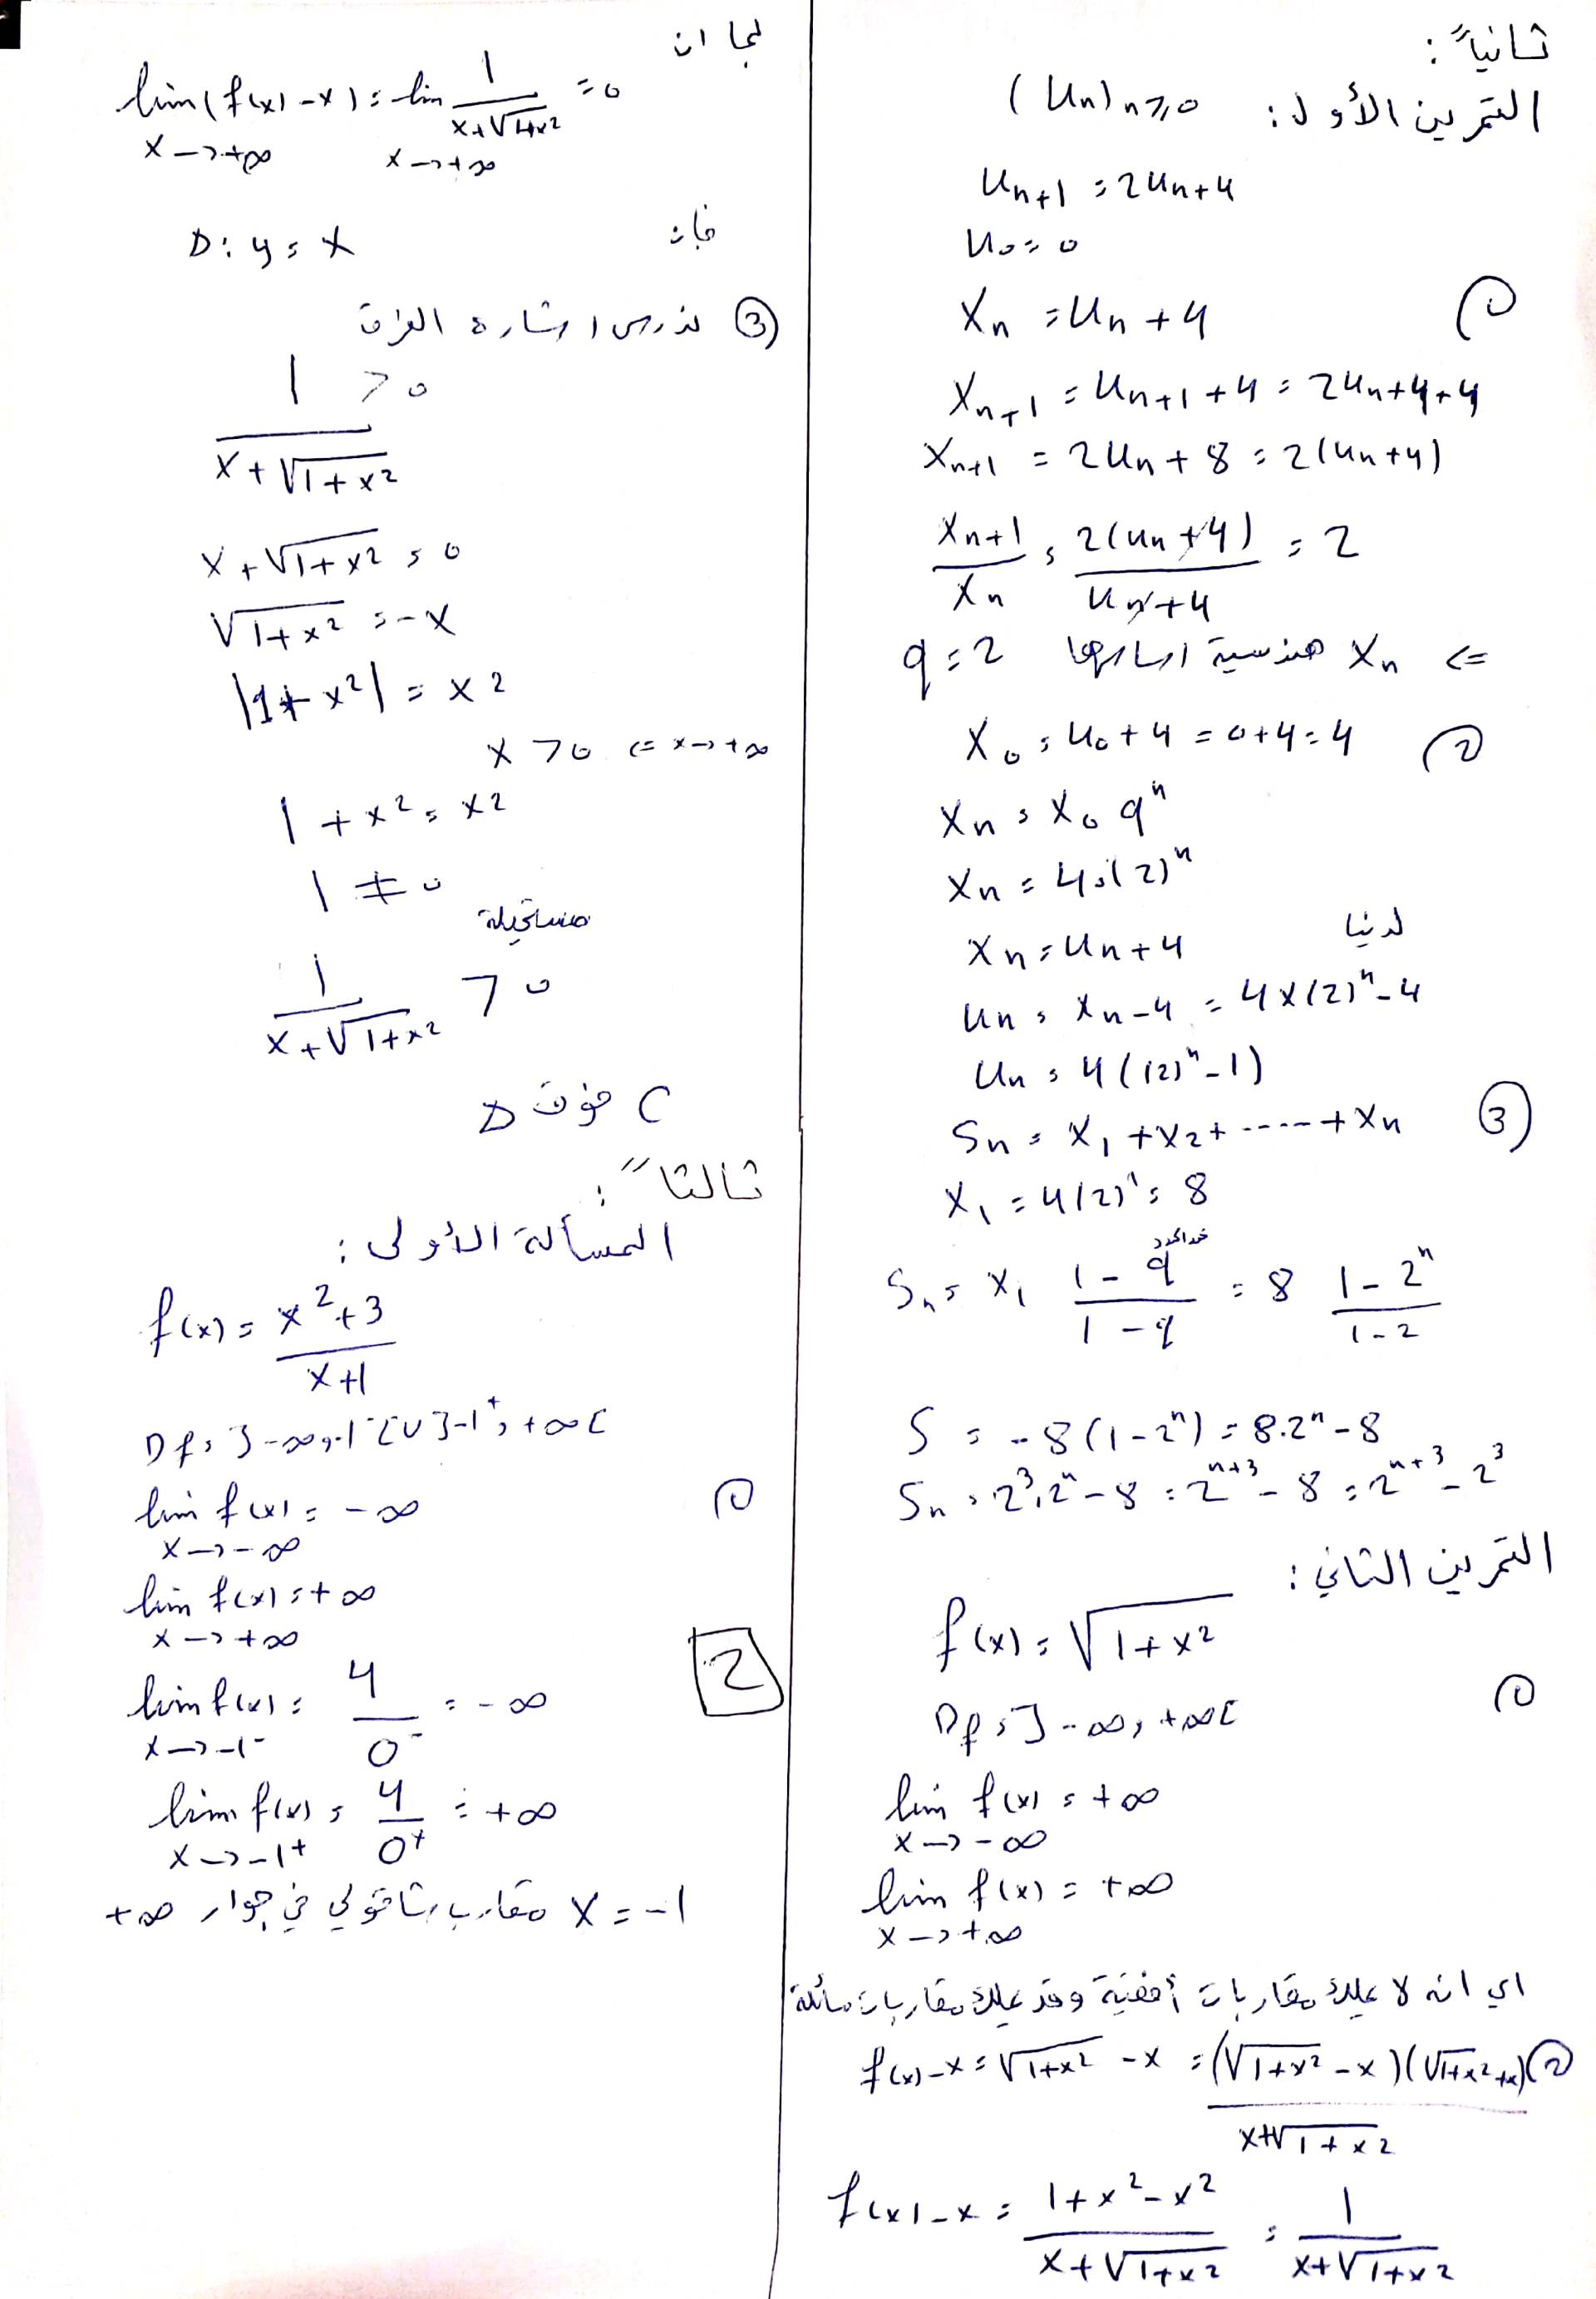 ثانياً:
التمرين الأول: (Un)n≥0
Un+1 = 2Un+4
U0 = 0
① Xn = Un + 4
Xn+1 = Un+1 + 4 = 2Un+4+4
Xn+1 = 2Un + 8 = 2(Un+4)
Xn+1/Xn = 2(Un+4)/(Un+4) = 2
⇐ Xn هندسية اساسها q = 2
② X0 = U0 + 4 = 0+4 = 4
Xn = X0 q^n
Xn = 4.(2)^n
لدينا Xn = Un + 4
Un = Xn - 4 = 4×(2)^n - 4
Un = 4((2)^n - 1)
③ Sn = X1 + X2 + ----- + Xn
X1 = 4(2)^1 = 8
Sn = X1 (1 - q^عدد الحدود)/(1 - q) = 8 (1 - 2^n)/(1 - 2)
S = -8(1 - 2^n) = 8.2^n - 8
Sn = 2^3.2^n - 8 = 2^(n+3) - 8 = 2^(n+3) - 2^3
التمرين الثاني:
f(x) = √(1+x²)
① Df = ]-∞, +∞[
lim f(x) = +∞
x→-∞
lim f(x) = +∞
x→+∞
اي انه لا يملك مقاربات أفقية وقد يملك مقاربات مائلة
② f(x)-x = √(1+x²) - x = (√(1+x²) - x)(√(1+x²)+x)/(x+√(1+x²))
f(x)-x = (1+x²-x²)/(x+√(1+x²)) = 1/(x+√(1+x²))
بما ان
lim(f(x)-x) = lim 1/(x+√(1+x²)) = 0
x→+∞ x→+∞
فان D: y = x
③ ندرس اشارة الفرق
1/(x+√(1+x²)) > 0
x+√(1+x²) = 0
√(1+x²) = -x
|1+x²| = x²
x→+∞ ⇒ x > 0
1 + x² = x²
1 ≠ 0
مستحيلة
1/(x+√(1+x²)) > 0
C فوق D
ثالثاً:
المسألة الأولى:
f(x) = (x²+3)/(x+1)
Df = ]-∞, -1⁻[ ∪ ]-1⁺, +∞[
① lim f(x) = -∞
x→-∞
lim f(x) = +∞
x→+∞
lim f(x) = 4/0⁻ = -∞
x→-1⁻
lim f(x) = 4/0⁺ = +∞
x→-1⁺
x = -1 مقارب شاقولي في جوار +∞
2